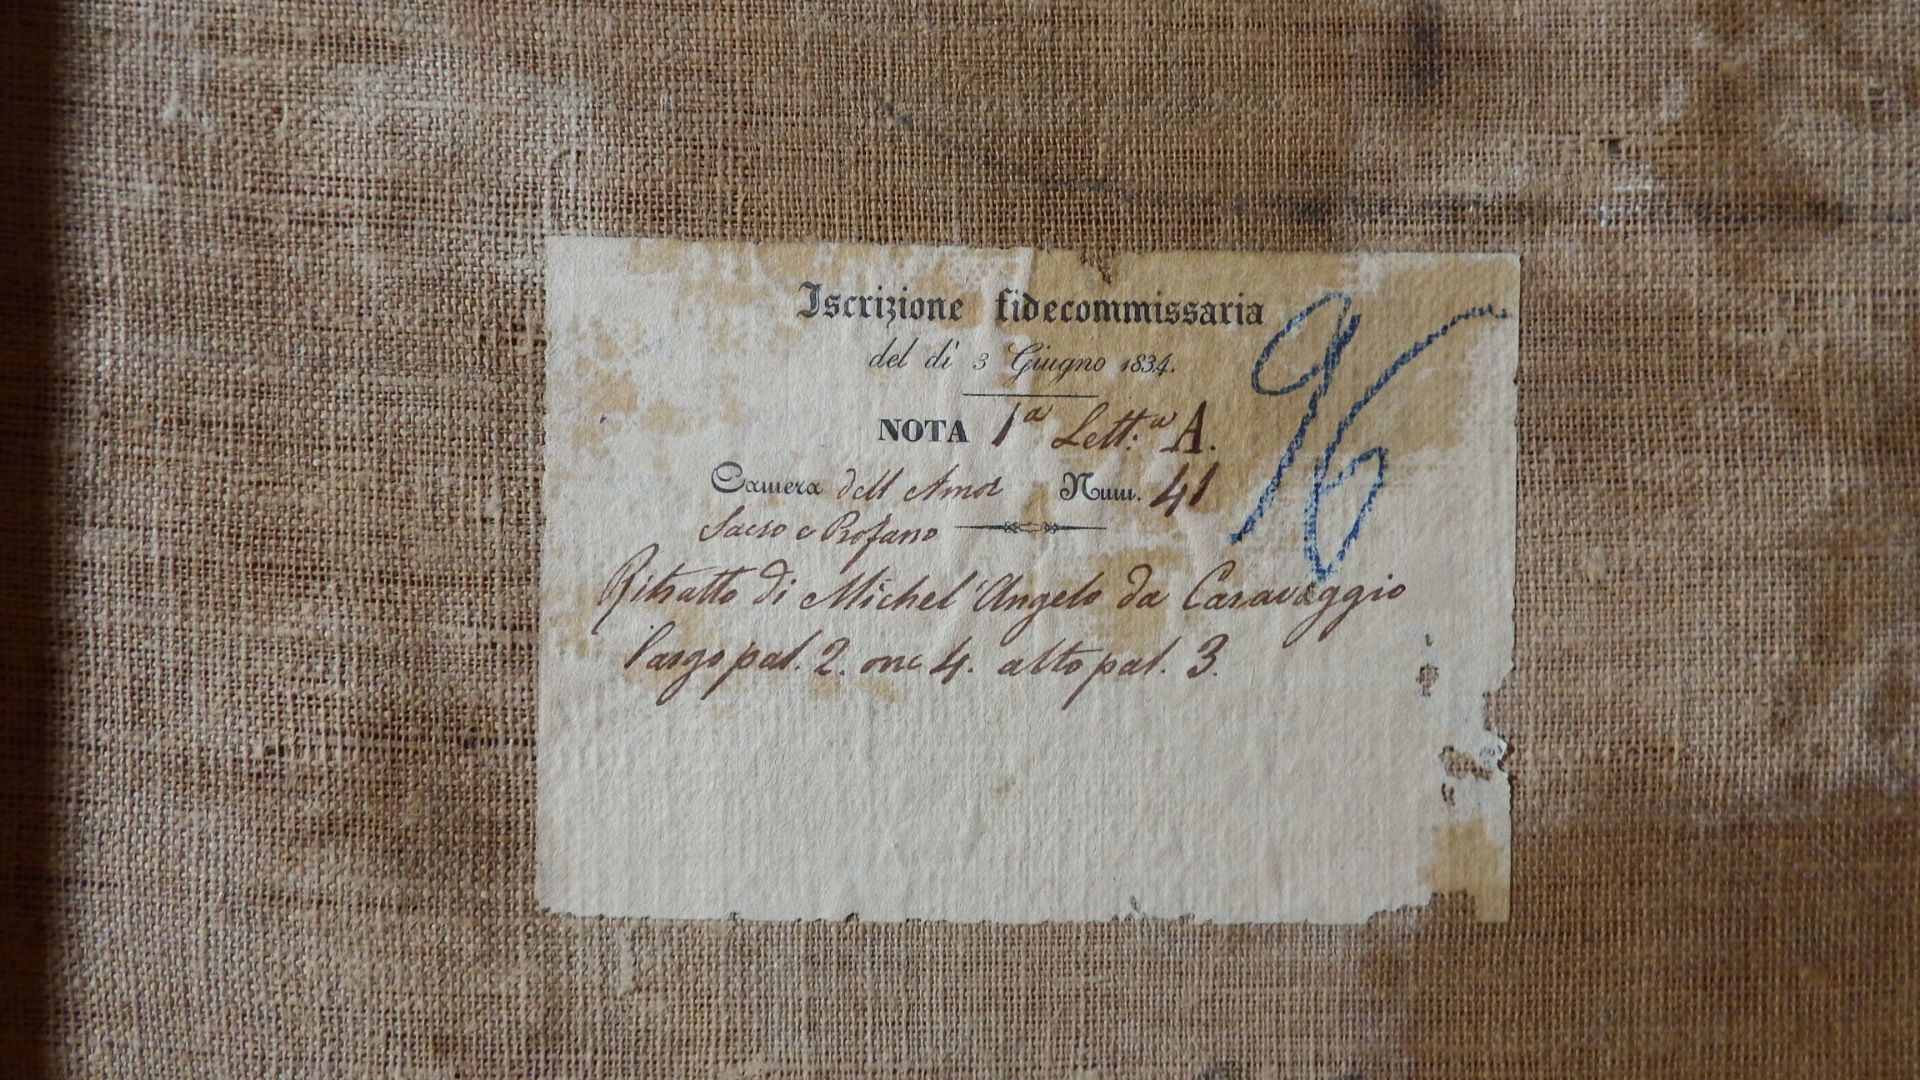 Iscrizione fidecommissaria
del dì 3 Giugno 1834.
NOTA 1ª Lett:ª A.
Camera dell Amor Num. 41
Sacro e Profano
96
Ritratto di Michel'Angelo da Caravaggio
largo pal. 2. onc 4. alto pal. 3.